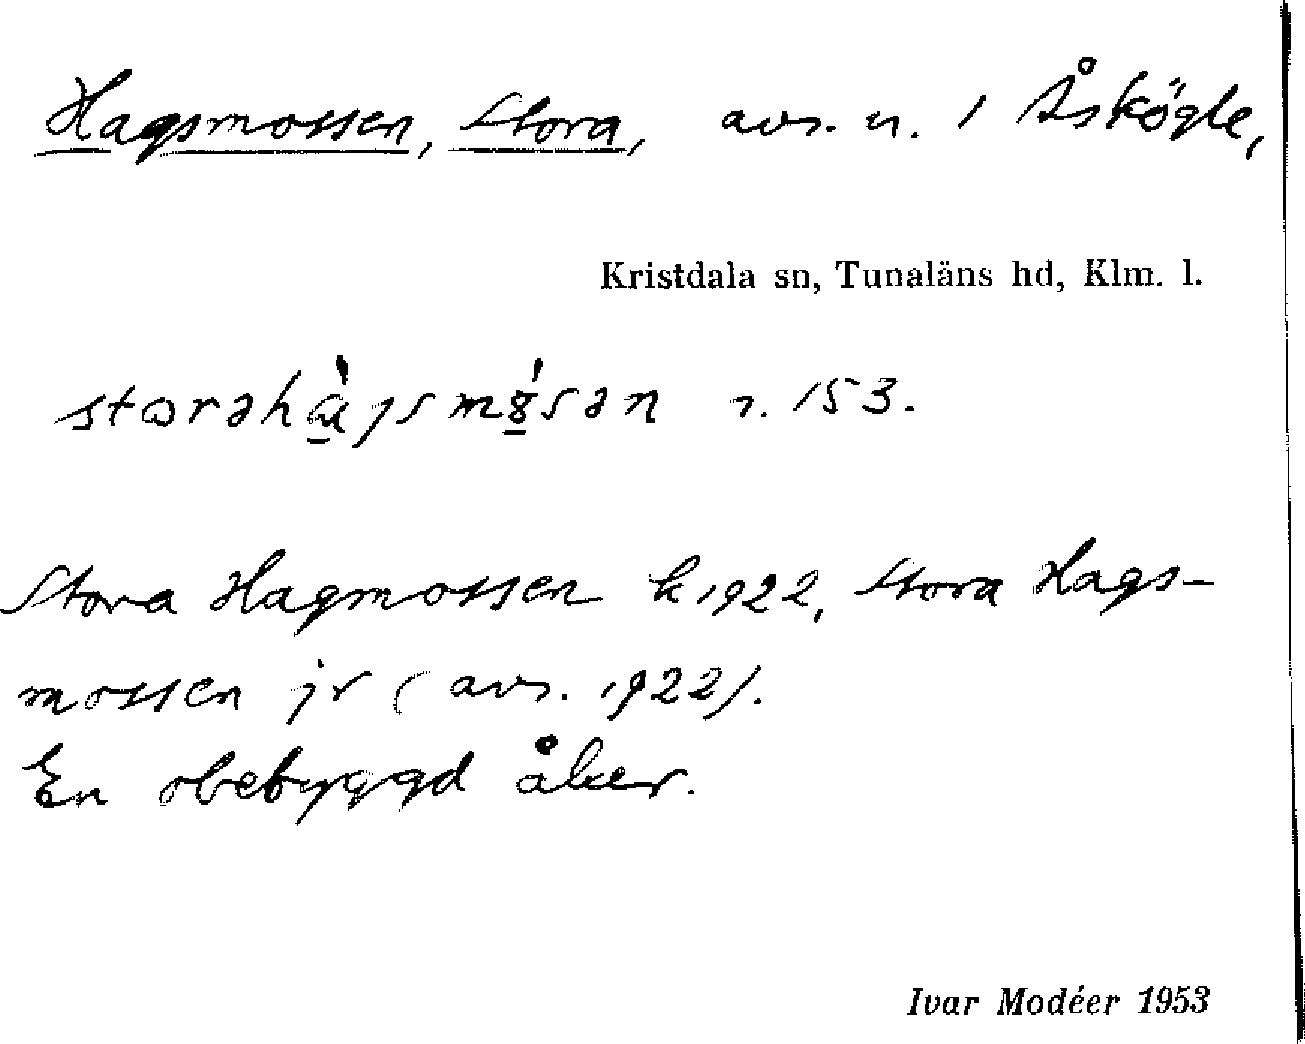 Hagsmossen, Stora, avs. n. 1 Åskögle,
Kristdala sn, Tunaläns hd, Klm. l.
r. 153.
Stora Hagmossen k 1922, Stora Hags-
mossen jr (avs. 1922).
En obebyggd åker.
Ivar Modéer 1953